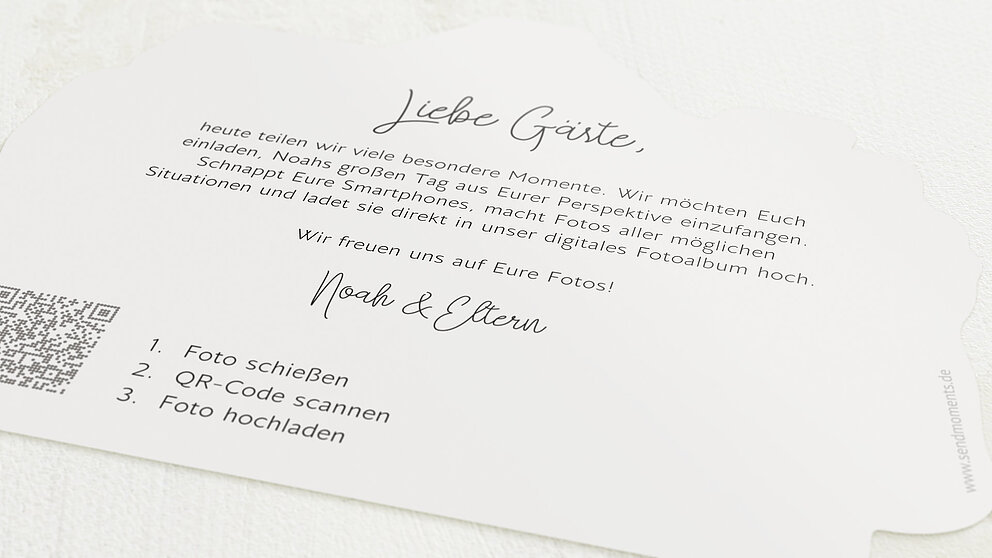 Liebe Gäste,
heute teilen wir viele besondere Momente. Wir möchten Euch
einladen, Noahs großen Tag aus Eurer Perspektive einzufangen.
Schnappt Eure Smartphones, macht Fotos aller möglichen
Situationen und ladet sie direkt in unser digitales Fotoalbum hoch.
Wir freuen uns auf Eure Fotos!
Noah & Eltern
1. Foto schießen
2. QR-Code scannen
3. Foto hochladen
www.sendmoments.de